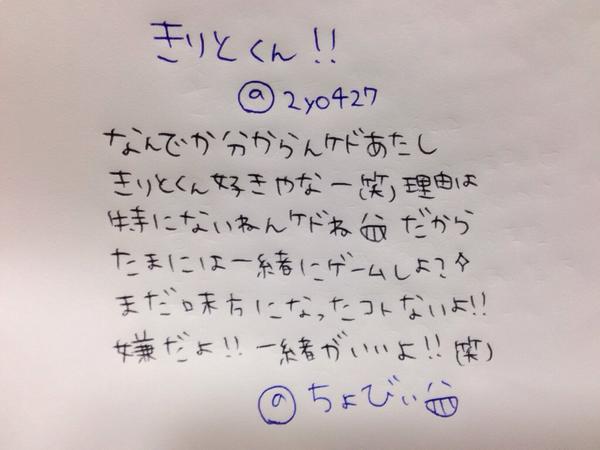 きりとくん!!
@2yo427
なんでか分からんケドあたし
きりとくん好きやなー(笑)理由は
特にないねんケドね だから
たまには一緒にゲームしよ?
まだ味方になったコトないよ!!
嫌だよ!!一緒がいいよ!!(笑)
@ちょびぃ